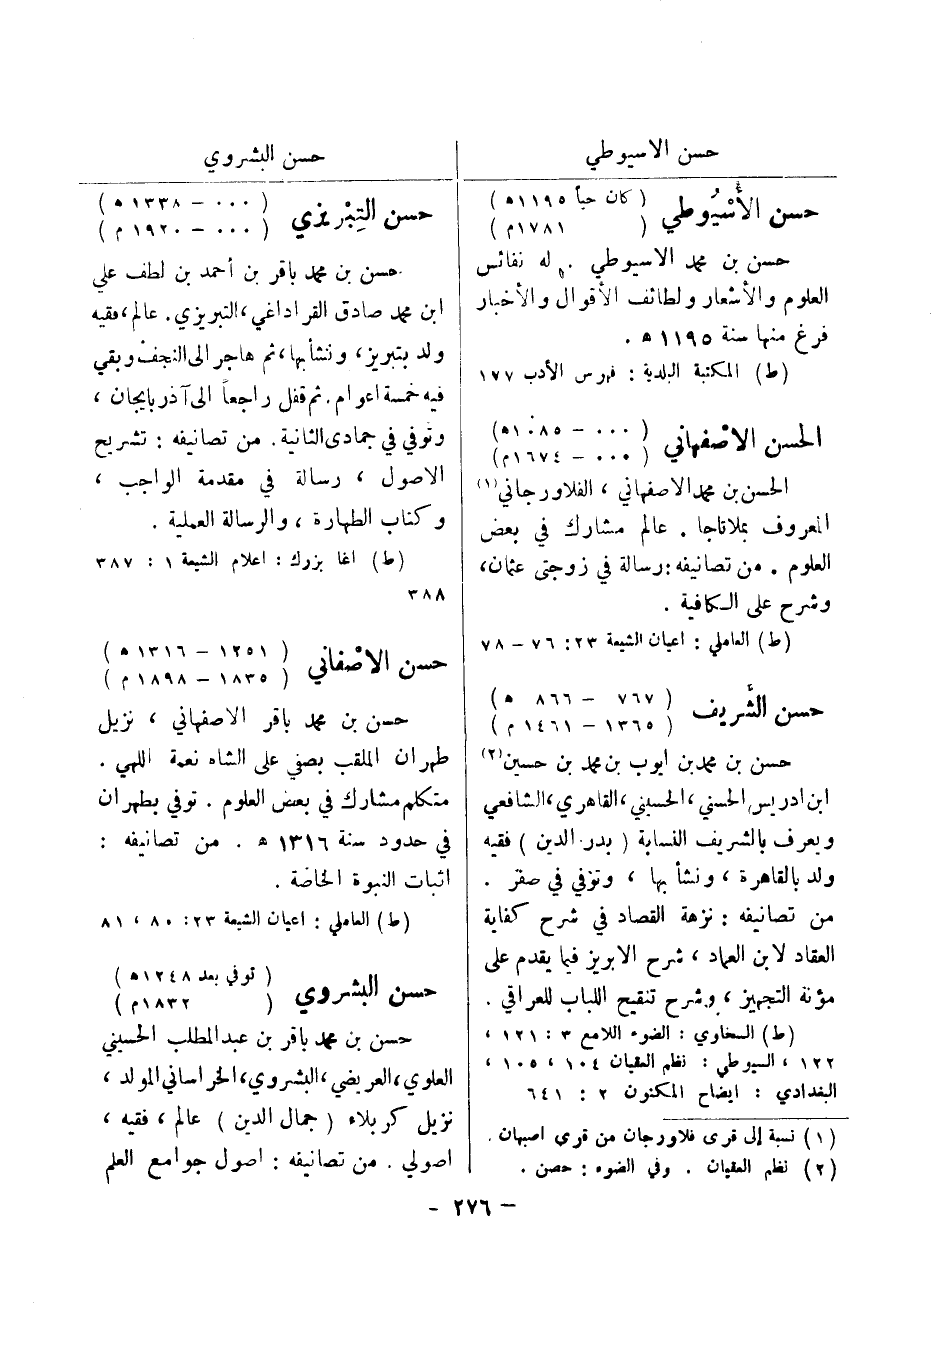 حسن الاسيوطي
حسن البشروي
حسن الأُسْيُوطي
( كان حياً ١١٩٥ ه )
( ١٧٨١ م )
حسن بن محمد الاسيوطي . له نفائس
العلوم والأشعار ولطائف الأقوال والأخبار
فرغ منها سنة ١١٩٥ ه .
(ط) المكتبة البلدية : فهرس الأدب ١٧٧
الحسن الاصْفهاني
( ٠٠٠ – ١٠٨٥ ه )
( ٠٠٠ – ١٦٧٤ م )
الحسن بن محمد الاصفهاني ، الفلاورجاني (١)
المعروف بملاتاجا . عالم مشارك في بعض
العلوم . من تصانيفه : رسالة في زوجتى عثمان،
وشرح على الكافية .
(ط) العاملي : اعيان الشيعة ٢٣ : ٧٦ – ٧٨
حسن الشَّريف
( ٧٦٧ – ٨٦٦ ه )
( ١٣٦٥ – ١٤٦١ م )
حسن بن محمد بن ايوب بن محمد بن حسين (٢)
ابن ادريس الحسني ، الحسيني ، القاهري ، الشافعي
ويعرف بالشريف النسابة ( بدر الدين ) فقيه
ولد بالقاهرة ، ونشأ بها ، وتوفي في صفر .
من تصانيفه : نزهة القصاد في شرح كفاية
العقاد لابن العماد ، شرح الابريز فيما يقدم على
مؤنة التجهيز ، وشرح تنقيح اللباب للعراقي .
(ط) السخاوي : الضوء اللامع ٣ : ١٢١ ،
١٢٢ ، السيوطي : نظم العقيان ١٠٤ ، ١٠٥ ،
البغدادي : ايضاح المكنون ٢ : ٦٤١
(١) نسبة إلى قرى فلاورجان من قرى اصبهان .
(٢) نظم العقيان . وفي الضوء : حصن .
حسن التِبْريزي
( ٠٠٠ – ١٣٣٨ ه )
( ٠٠٠ – ١٩٢٠ م )
حسن بن محمد باقر بن أحمد بن لطف علي
ابن محمد صادق القراداغي ، التبريزي . عالم ، فقيه
ولد بتبريز ، ونشأ بها ، ثم هاجر الى النجف وبقي
فيه خمسة اعوام . ثم قفل راجعاً الى آذربايجان ،
وتوفي في جمادى الثانية . من تصانيفه : تشريح
الاصول ، رسالة في مقدمة الواجب ،
وكتاب الطهارة ، والرسالة العملية .
(ط) اغا بزرك : اعلام الشيعة ١ : ٣٨٧
٣٨٨
حسن الاصْفهاني
( ١٢٥١ – ١٣١٦ ه )
( ١٨٣٥ – ١٨٩٨ م )
حسن بن محمد باقر الاصفهاني ، نزيل
طهران الملقب بصفي على الشاه نعمة اللهي .
متكلم مشارك في بعض العلوم . توفي بطهران
في حدود سنة ١٣١٦ ه . من تصانيفه :
اثبات النبوة الخاصة .
(ط) العاملي : اعيان الشيعة ٢٣ : ٨٠ ، ٨١
حسن البشروي
( توفي بعد ١٢٤٨ ه )
( ١٨٣٢ م )
حسن بن محمد باقر بن عبد المطلب الحسيني
العلوي ، العريضي ، البشروي ، الخراساني المولد ،
نزيل كربلاء ( جمال الدين ) عالم ، فقيه ،
اصولي . من تصانيفه : اصول جوامع العلم
– ٢٧٦ –